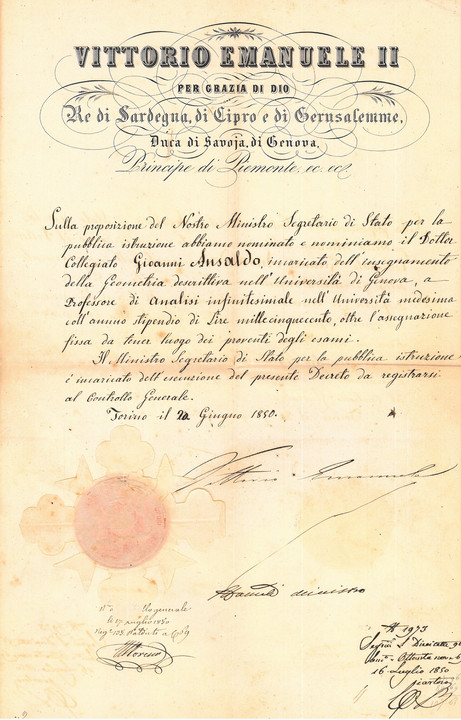 VITTORIO EMANUELE II
PER GRAZIA DI DIO
Re di Sardegna, di Cipro e di Gerusalemme,
Duca di Savoja, di Genova,
Principe di Piemonte, ec. ec.
Sulla proposizione del Nostro Ministro Segretario di Stato per la
pubblica istruzione abbiamo nominato e nominiamo il Dottor
Collegiato Giovanni Ansaldo, incaricato dell'insegnamento
della Geometria descrittiva nell'Università di Genova, a
Professore di Analisi infinitesimale nell'Università medesima
coll'annuo stipendio di Lire millecinquecento, oltre l'assegnazione
fissa da tener luogo dei proventi degli esami.
Il Ministro Segretario di Stato per la pubblica istruzione
è incaricato dell'esecuzione del presente Decreto da registrarsi
al Controllo Generale.
Torino il 20 Giugno 1850.
Vittorio Emanuele
generale
luglio 1850
Reg.
N 1973
16 Luglio 1850